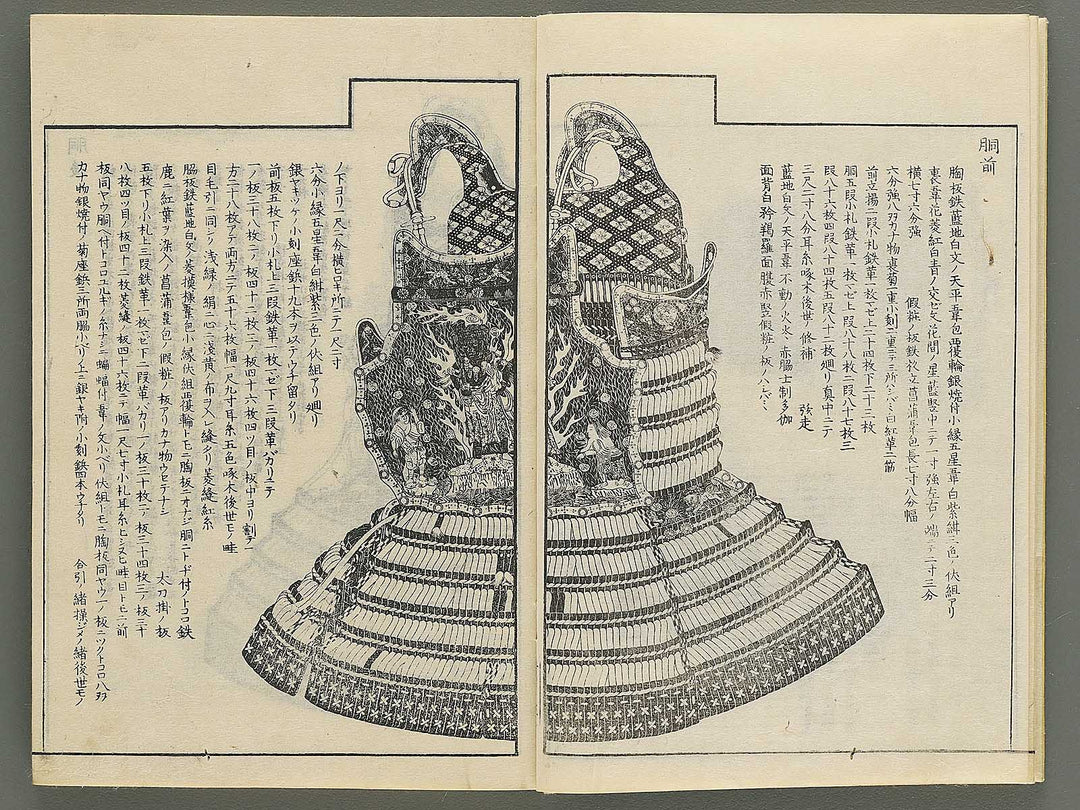 胴前
胸板鉄藍地白文ノ天平韋包覆輪銀焼付小縁五星韋白紫紺三色ノ伏組アリ
車韋花菱紅白青ノ交セ文花間ノ星藍竪中ニテ一寸強左右ノ端ニテ二寸三分
横七寸六分強 假粧ノ板鉄
六分強八双カナ物裏菊一重小刻二重三所ハシバミ白紅革二筋
前立揚二段小札鉄革一枚マゼ上二十四枚下二十三枚
胴五段小札鉄革一枚マゼ上段八十八枚二段八十七枚三
段八十六枚四段八十四枚五段八十二枚廻り真中ニテ
三尺二寸八分耳糸啄木後世ノ修補 弦走
藍地白文ノ天平韋不動ノ火炎赤脇士制多伽
面背白矜羯羅面腹赤竪假粧ノ板ノハシバミ
ノ下ヨリ一尺二分横ヒロキ所ニテ一尺二寸
六分小縁五星韋白紺紫三色ノ伏組アリ廻リ
銀ヤキツケノ小刻座鋲十九本ヲ以テウチ留タリ
前板五枚下リ小札上三段鉄革一枚マゼ下二段革バカリニテ
一ノ板三十八枚二ノ板四十二枚三ノ板四十六枚四ツ目ノ板中ヨリ割テ一
方二十八枚アテ両方ニテ五十六枚幅一尺九寸耳糸五色啄木後世モノ畦
目毛引ニ同シ浅緑ノ絹ニ心ニ浅黄ノ布ヲ入レ縫タリ菱縫紅糸
脇板鉄藍地白文ノ菱模様韋包小縁伏組覆輪トモニ胸板ニオナジ胴ニトヂ付ノトコロ鉄
鹿ニ紅葉ヲ染入ノ菖蒲韋包ノ假粧ノ板アリカナ物ウセテナシ 太刀掛ノ板
五枚下リ小札上三段鉄革一枚マゼ下二段革バカリ一ノ板三十枚二ノ板三十四枚三ノ板三十
八枚四ツ目ノ板四十二枚菱縫ノ板四十六枚ニテ幅一尺七寸小札耳糸ヒシヌヒ畦目トモニ前
板同ヤウ胴ヘ付トコロユルギノ糸ナシニ蝙蝠付韋ノ文小ベリ伏組トモニ胸板同ヤウ一ノ板ニツクトコロ八双
カナ物銀焼付ノ菊座鋲二所両脇小ベリノ上ニ銀ヤキ附ノ小刻鋲四本ウチタリ 合引ノ緒操ジメノ緒後世モノ